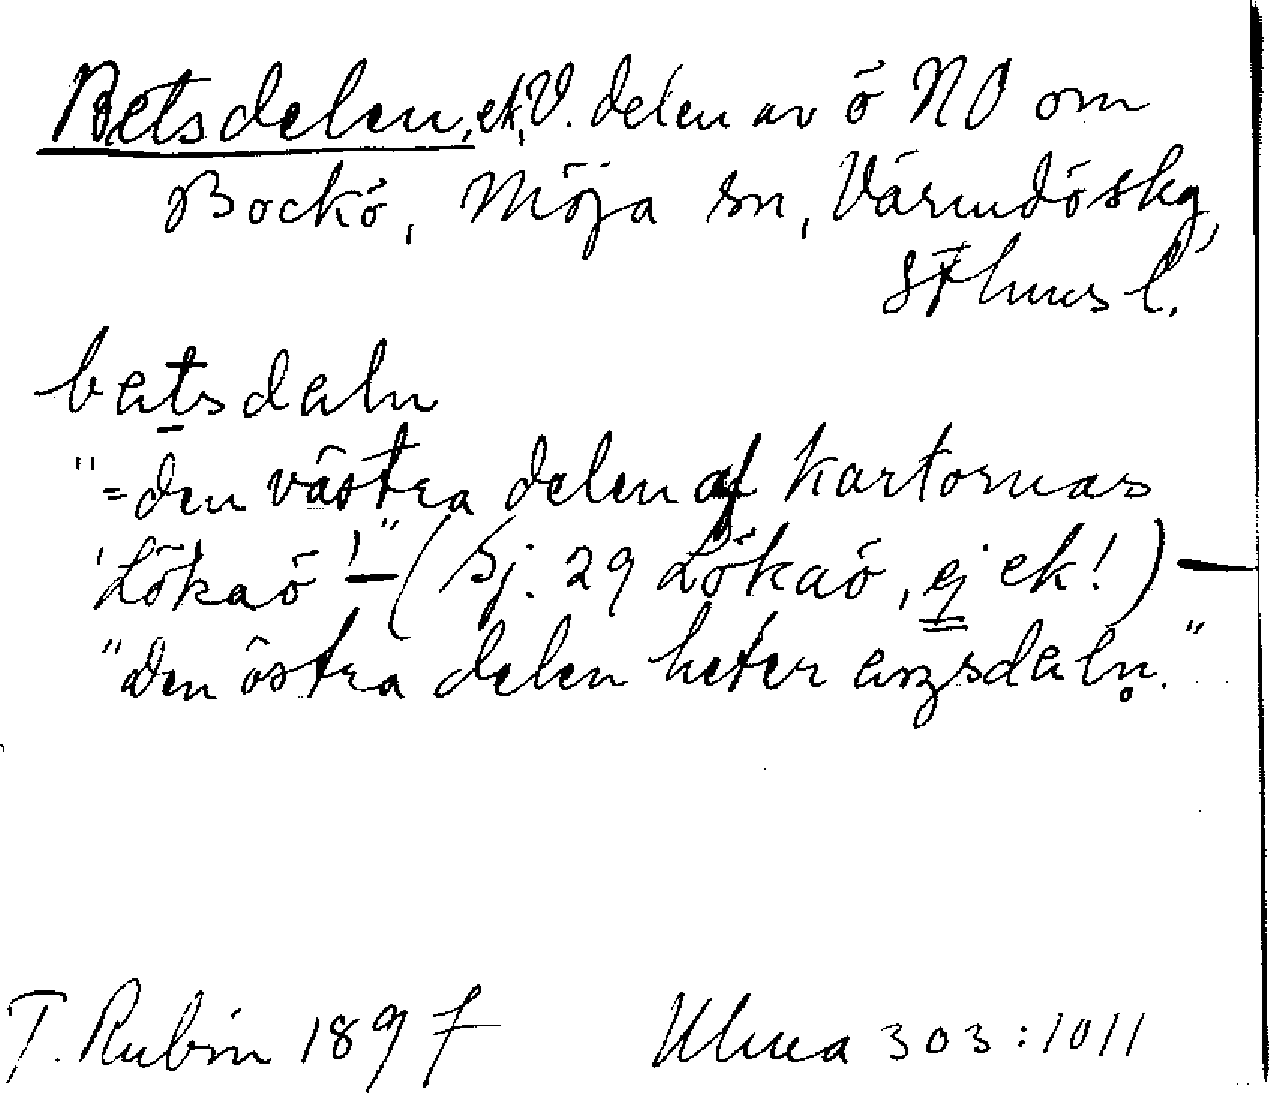 Betsdelen, ek, V. delen av ö NO om
Bockö, Möja sn, Värmdöskg,
Sthms l.
betsdeln
"=den västra delen af kartornas
'Lökaö'"–(Sj. 29 Lökaö, ej ek!)–
"den östra delen heter aŋsdeln."
T. Rubin 1897 Uluca 303:1011